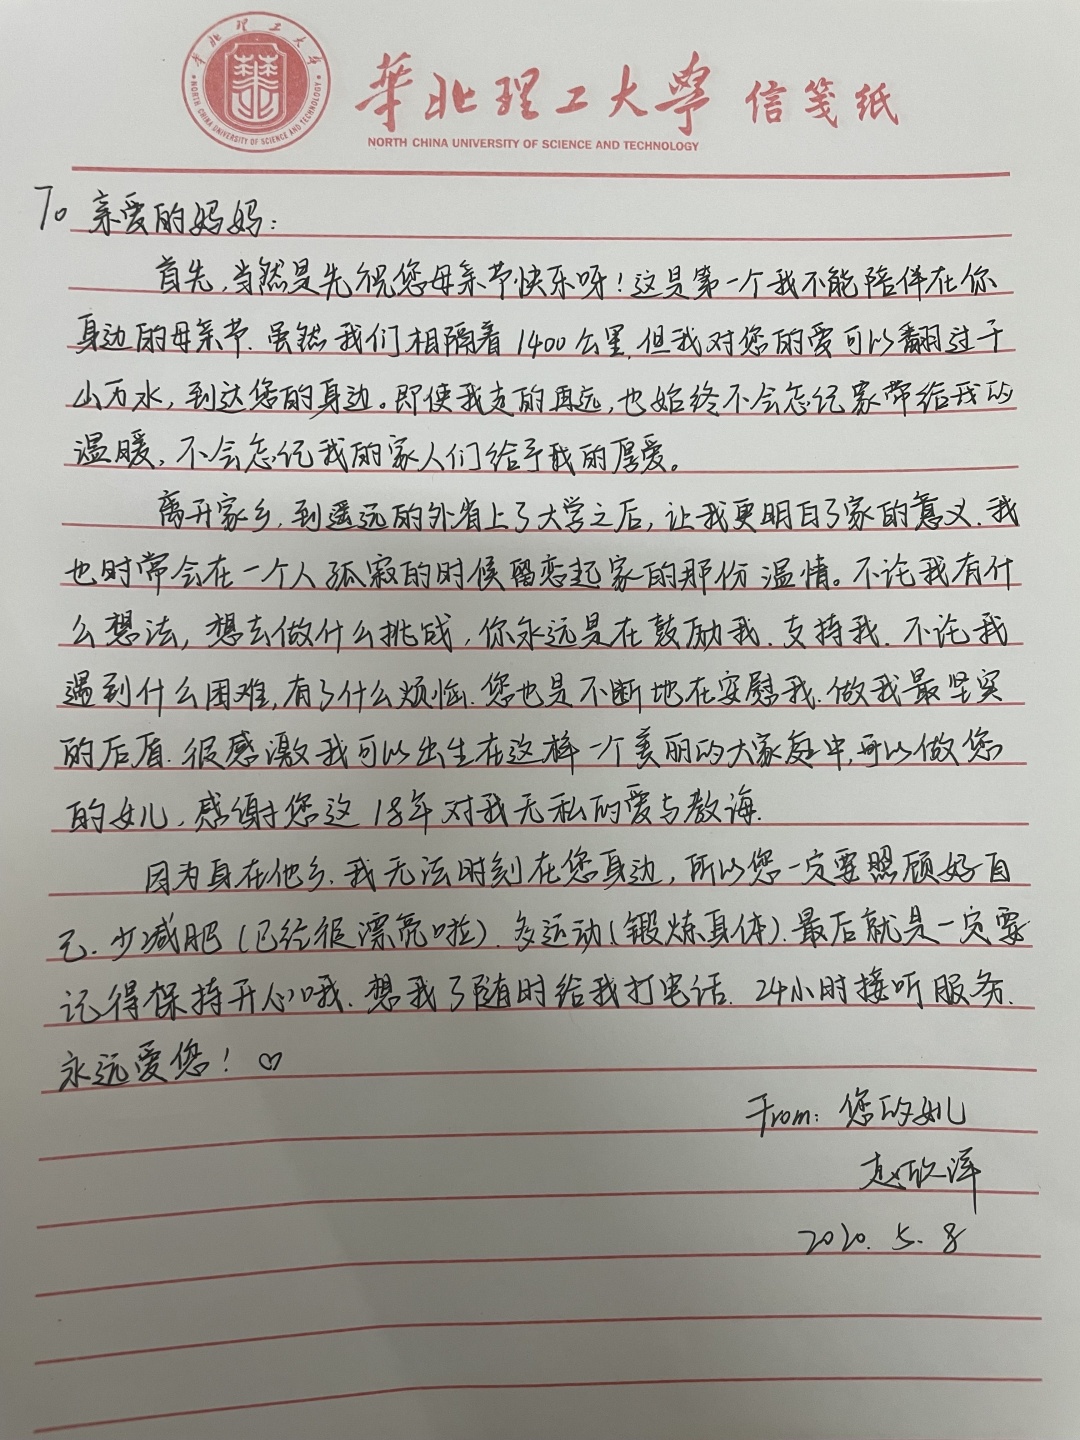 华北理工大学
NORTH CHINA UNIVERSITY OF SCIENCE AND TECHNOLOGY
華北理工大學 信笺纸
NORTH CHINA UNIVERSITY OF SCIENCE AND TECHNOLOGY
To 亲爱的妈妈:
首先,当然是先祝您母亲节快乐呀!这是第一个我不能陪伴在你
身边的母亲节.虽然我们相隔着1400公里,但我对您的爱可以翻过千
山万水,到达您的身边。即使我走的再远,也始终不会忘记家带给我的
温暖,不会忘记我的家人们给予我的厚爱。
离开家乡,到遥远的外省上了大学之后,让我更明白了家的意义.我
也时常会在一个人孤寂的时候留恋起家的那份温情。不论我有什
么想法,想去做什么挑战,你永远是在鼓励我.支持我.不论我
遇到什么困难,有了什么烦恼.您也是不断地在安慰我.做我最坚实
的后盾.很感激我可以出生在这样一个美丽的大家庭中,可以做您
的女儿,感谢您这18年对我无私的爱与教诲.
因为身在他乡.我无法时刻在您身边,所以您一定要照顾好自
己.少减肥(已经很漂亮啦).多运动(锻炼身体).最后就是一定要
记得保持开心哦.想我了随时给我打电话.24小时接听服务.
永远爱您!♡
From:您的女儿
赵欣洋
2020.5.8